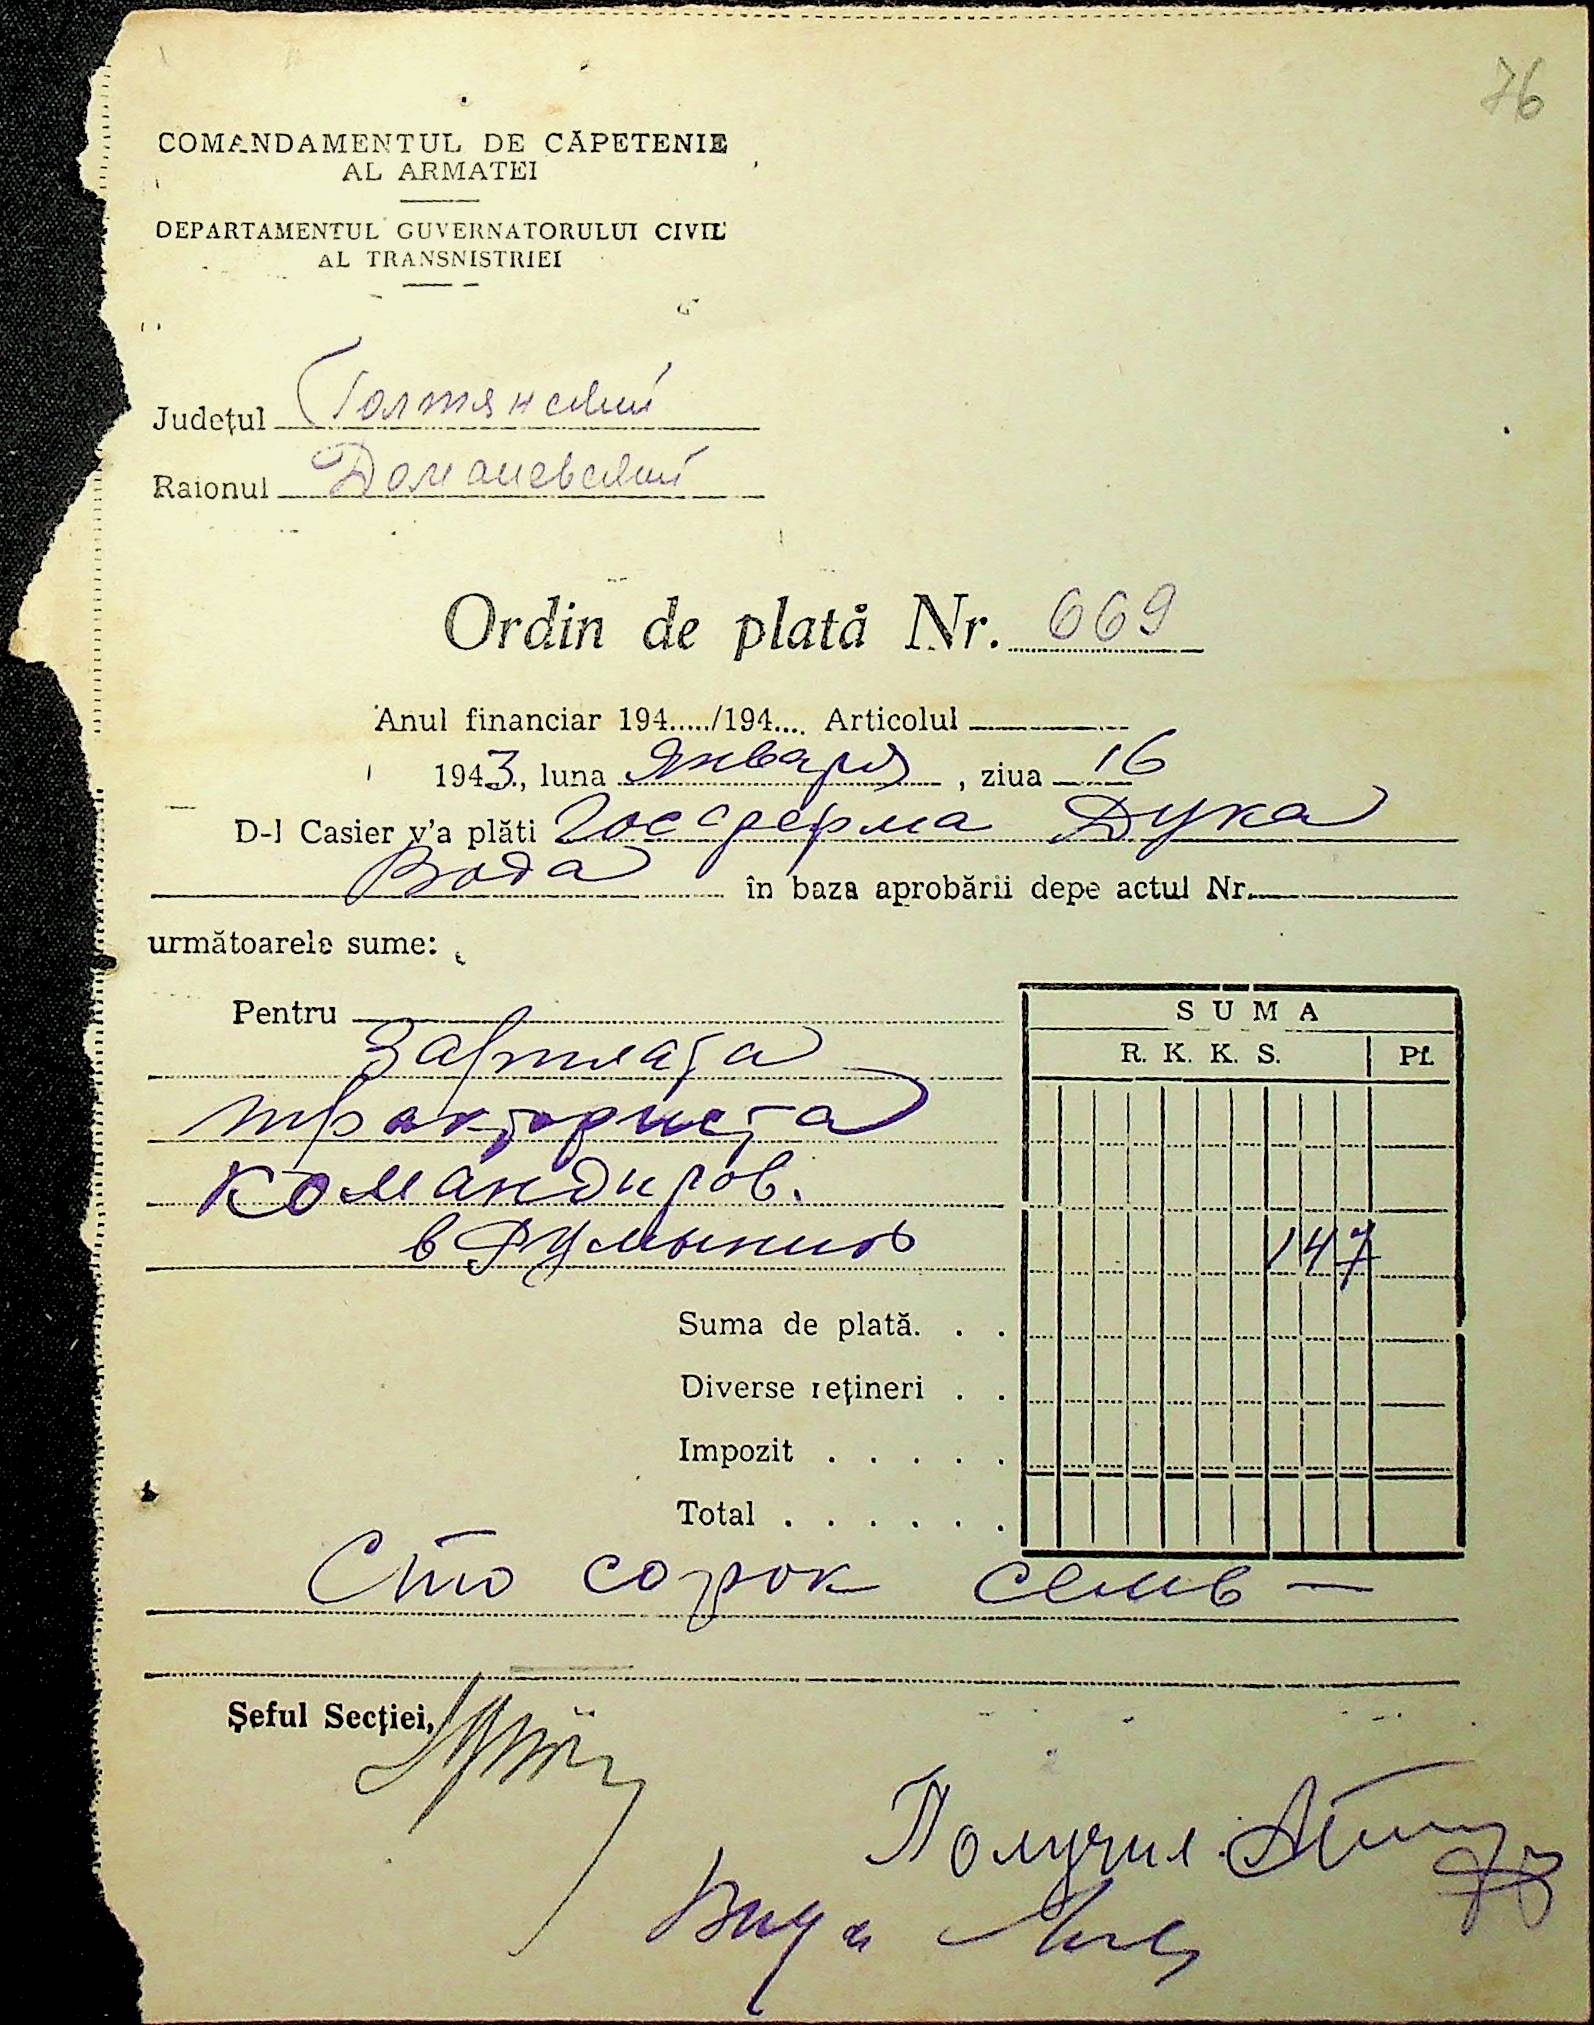 76
COMANDAMENTUL DE CĂPETENIE
AL ARMATEI
DEPARTAMENTUL GUVERNATORULUI CIVIL
AL TRANSNISTRIEI
Județul Голтянский
Raionul Доманевский
Ordin de plată Nr. 669
Anul financiar 194...../194.... Articolul
1943, luna Января, ziua 16
D-l Casier v'a plăti Госферма Дука
Вода în baza aprobării depe actul Nr.
următoarele sume:
Pentru
SUMA
R. K. K. S. Pf.
Зарплата
тракториста
командиров.
в Румынию 147
Suma de plată. . .
Diverse rețineri . .
Impozit . . . . .
Total . . . . . .
Сто сорок семь —
Șeful Secției,
Получил